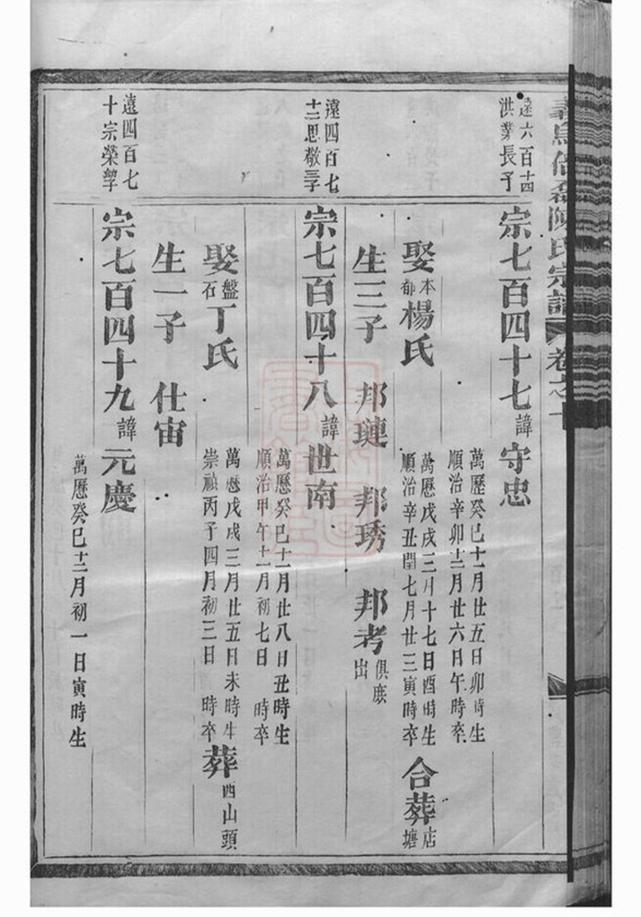 義烏倍磊陳氏宗譜 卷之十
遠六百十四
洪業長子
宗七百四十七諱守忠
萬歷癸巳十一月廿五日卯時生
順治辛卯十二月廿六日午時卒
娶本都楊氏
萬歷戊戌三月十七日酉時生
順治辛丑閏七月廿三寅時卒
合葬店塘
生三子 邦璉 邦琇 邦考 俱庶出
遠四百七
十二思敬三子
宗七百四十八諱世南
萬歷癸巳十一月廿八日丑時生
順治甲午十一月初七日 時卒
娶盤石丁氏
萬歷戊戌三月廿五日未時生
崇禎丙子四月初三日 時卒
葬西山頭
生一子 仕宙
遠四百七
十宗榮
宗七百四十九諱元慶
萬歷癸巳十二月初一日寅時生